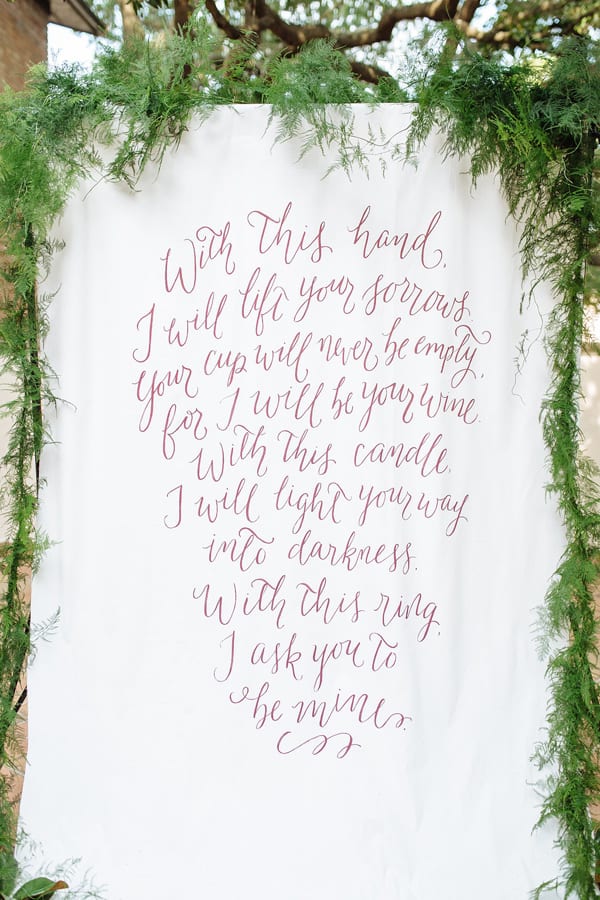 With this hand,
I will lift your sorrows.
Your cup will never be empty,
for I will be your wine.
With this candle,
I will light your way
into darkness.
With this ring,
I ask you to
be mine.